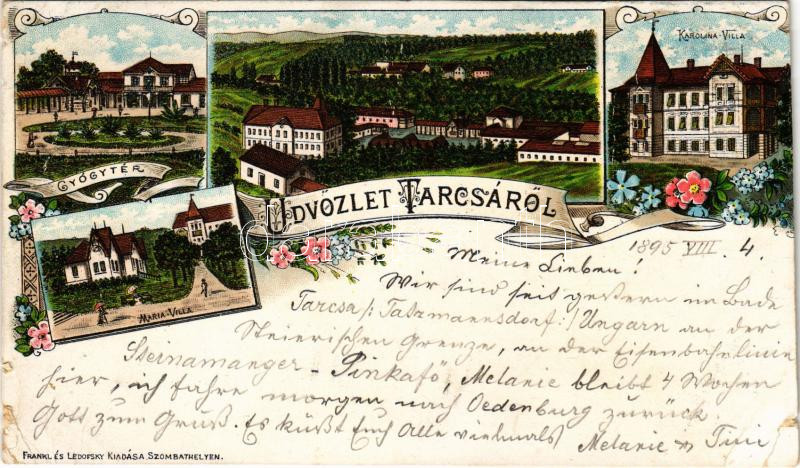 KAROLINA-VILLA
GYÓGYTÉR
ÜDVÖZLET TARCSÁRÓL
MARIA-VILLA
1895 VIII. 4.
Meine Lieben!
Wir sind seit gestern im Bade
Tarcsa /: Tatzmannsdorf :/ Ungarn an der
Steierischen Grenze, an der Eisenbahnlinie
Steinamanger - Pinkafö, Melanie bleibt 4 Wochen
hier, ich fahre morgen nach Oedenburg zurück.
Gott zum Gruß. Es küßt Euch Alle vielmals
Melanie
FRANKL ÉS LEDOFSKY KIADÁSA SZOMBATHELYEN.